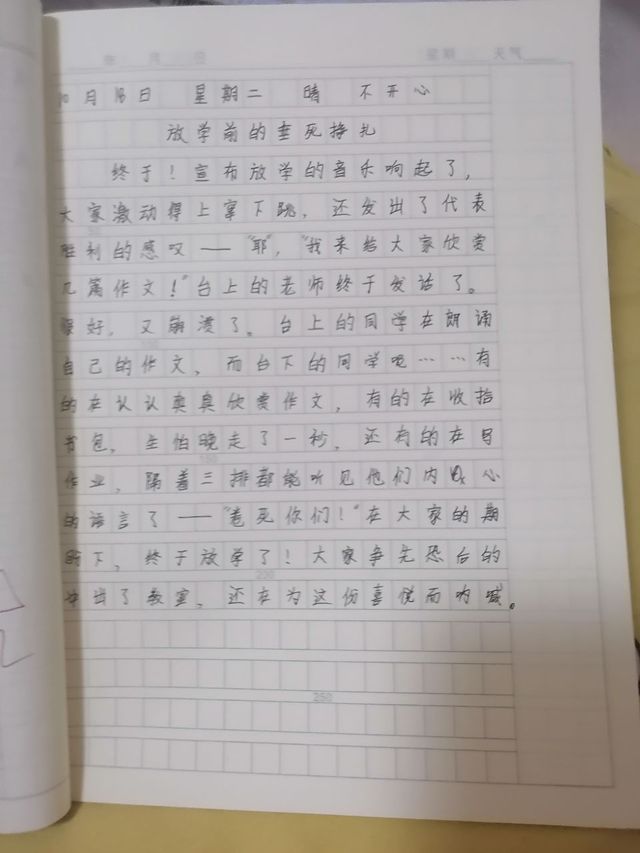 年 月 日 星期 天气
10月18日 星期二 晴 不开心
放学前的垂死挣扎
终于！宣布放学的音乐响起了，
大家激动得上窜下跳，还发出了代表
胜利的感叹——“耶”，“我来给大家欣赏
几篇作文！”台上的老师终于发话了。
很好，又崩溃了。台上的同学在朗诵
自己的作文，而台下的同学呢……有
的在认认真真欣赏作文，有的在收拾
书包，生怕晚走了一秒，还有的在写
作业，隔着三排都能听见他们内心
的语言了——“卷死你们！”在大家的期
盼下，终于放学了！大家争先恐后的
冲出了教室，还在为这份喜悦而呐喊。
200
250